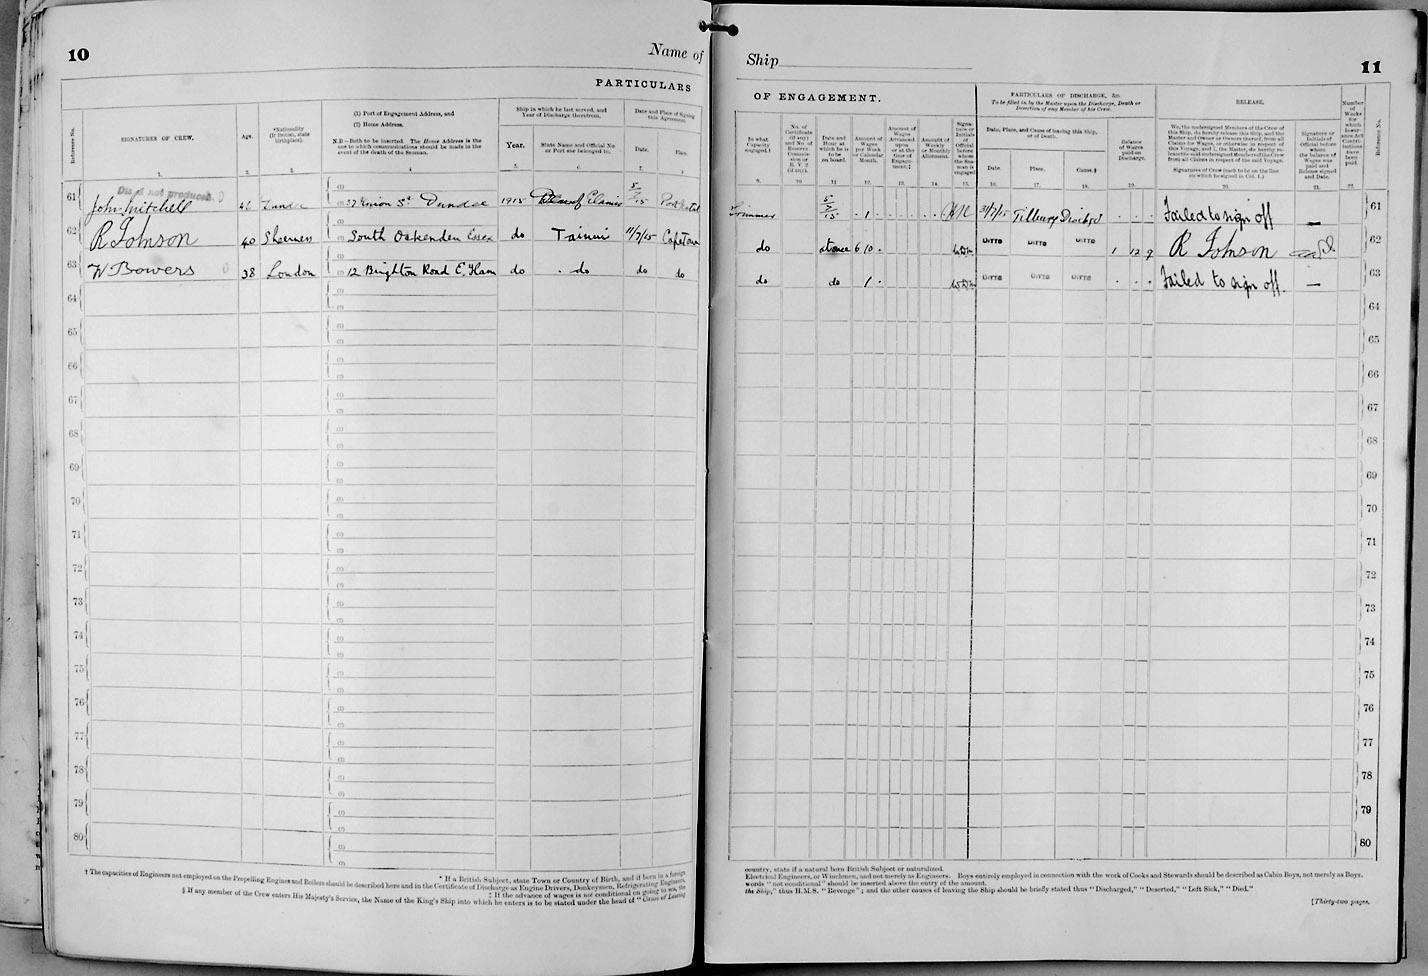 10
Name of Ship
11
PARTICULARS OF ENGAGEMENT.
PARTICULARS OF DISCHARGE, &c.
To be filled in by the Master upon the Discharge, Death or Desertion of any Member of his Crew.
RELEASE.
Reference No.
SIGNATURES OF CREW.
Age.
*Nationality (If British, state birthplace).
(1) Port of Engagement Address, and
(2) Home Address.
N.B.—Both to be inserted. The Home Address is the one to which communications should be made in the event of the death of the Seaman.
Ship in which he last served, and Year of Discharge therefrom.
Year.
State Name and Official No. or Port she belonged to.
Date and Place of Signing this Agreement.
Date.
Place.
In what Capacity engaged.†
No. of Certificate (if any) and No. of Reserve Commission or R.V. 2 (if any).
Date and Hour at which he is to be on board.
Amount of Wages per Week or Calendar Month.
Amount of Wages Advanced upon or at the time of Engagement.‡
Amount of Weekly or Monthly Allotment.
Signature or Initials of Official before whom the Seaman is engaged
Date, Place, and Cause of leaving this Ship, or of Death.
Date.
Place.
Cause.§
Balance of Wages paid on Discharge.
We, the undersigned Members of the Crew of this Ship, do hereby release this Ship, and the Master and Owner or Owners thereof, from all Claims for Wages, or otherwise in respect of this Voyage, and I, the Master, do hereby release the undersigned Members of the Crew from all Claims in respect of the said Voyage.
Signatures of Crew (each to be on the line on which he signed in Col. 1.)
Signature or Initials of Official before whom the balance of Wages was paid and Release signed and Date.
Number of Weeks for which Insurance Act Contributions have been paid.
Reference No.
1. 2. 3. 4 5. 6. 7. 8 9. 10 11. 12. 13. 14. 15. 16. 17. 18. 19. 20. 21. 22.
Dis. A not produced.
61 John Mitchell 1915 5/7/15 5/7/15 1 31/7/15 Tilbury Disch'd Failed to sign off — 61
62 R Johnson 40 Sheerness South Ockenden Essex do Tainui 11/7/15 Capetown do at once 6 10 DITTO DITTO DITTO 1 12 9 R Johnson 62
63 W Bowers 38 London 12 Brighton Road E. Ham do do do do do do 1 DITTO DITTO DITTO Failed to sign off. — 63
64 64
65 65
66 66
67 67
68 68
69 69
70 70
71 71
72 72
73 73
74 74
75 75
76 76
77 77
78 78
79 79
80 80
* If a British Subject, state Town or Country of Birth, and if born in a foreign country, state if a natural born British Subject or naturalized.
† The capacities of Engineers not employed on the Propelling Engines and Boilers should be described here and in the Certificate of Discharge as Engine Drivers, Donkeymen, Refrigerating Engineers, Electrical Engineers, or Winchmen, and not merely as Engineers. Boys entirely employed in connection with the work of Cooks and Stewards should be described as Cabin Boys, not merely as Boys.
‡ If the advance of wages is not conditional on going to sea, the words "not conditional" should be inserted above the entry of the amount.
§ If any member of the Crew enters His Majesty's Service, the Name of the King's Ship into which he enters is to be stated under the head of "Cause of Leaving the Ship," thus H.M.S. "Revenge"; and the other causes of leaving the Ship should be briefly stated thus "Discharged," "Deserted," "Left Sick," "Died."
[Thirty-two pages.